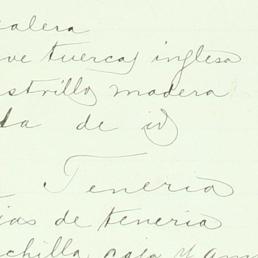 calera
ve tuercas inglesa
strillo madera
ta de id
Teneria
ias de teneria
chilla, capa y am